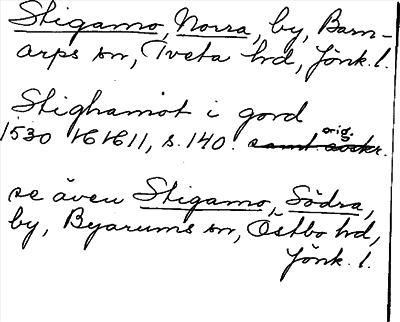 Stigamo, Norra, by, Barn-
arps sn, Tveta hd, Jönk. l.
Stighamot i gord
1530 HH 11, s. 140. orig.
se även Stigamo, Södra,
by, Byarums sn, Östbo hd,
Jönk. l.